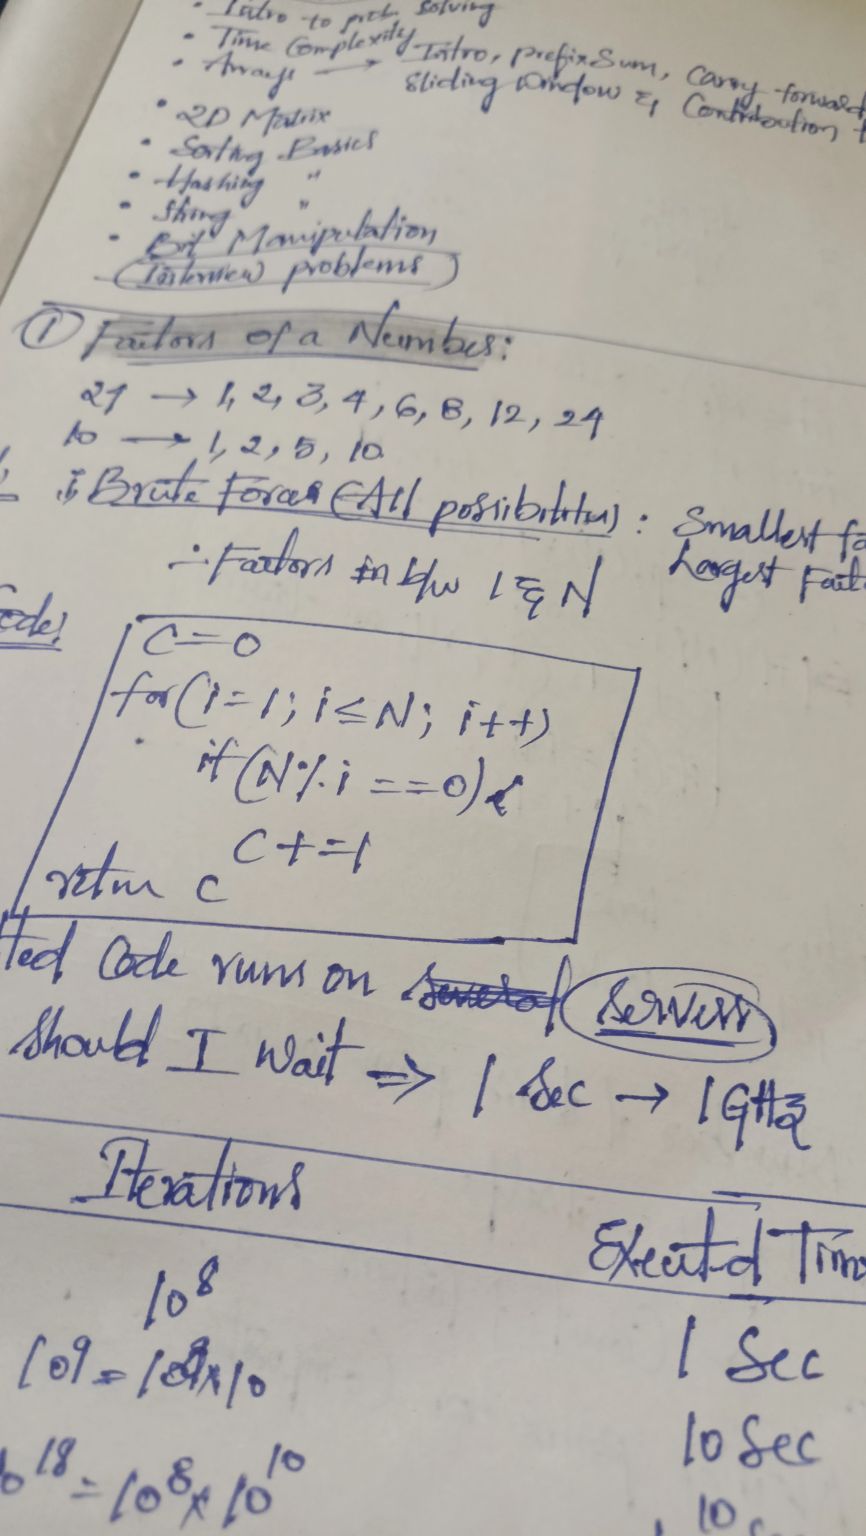 • Intro to prob. Solving
• Time Complexity
• Arrays → Intro, prefix Sum, Carry forward
Sliding window & Contribution
• 2D Matrix
• Sorting Basics
• Hashing "
• String "
• Bit Manipulation
(Interview problems)
① Factors of a Number:
24 → 1, 2, 3, 4, 6, 8, 12, 24
10 → 1, 2, 5, 10
Brute Force (All possibilities) : Smallest
Largest
∴ Factors in b/w 1 & N
Code:
C=0
for(i=1; i≤N; i++)
if(N%i ==0){
C+=1
return C
Code runs on servers
Should I wait ⇒ 1 Sec → 1GHz
Iterations
Executed Time
10⁸
1 Sec
10⁹ = 10⁸×10
10 Sec
10¹⁸ = 10⁸×10¹⁰
10